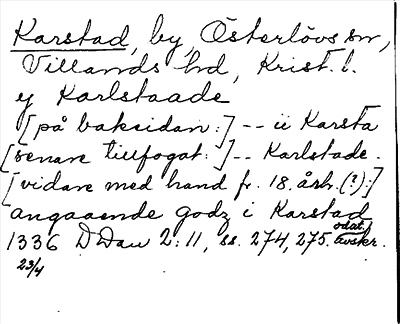 Karstad, by, Österlövs sn,
Villands hd, Krist. l.
ý Karlstaade
[på baksidan:] -- ii Karsta
[senare tillfogat:] -- Karlstade.
[vidare med hand fr. 18. årh. (?):]
angaaende godz i Karstad
1336 DDan 2: 11, ss. 274, 275. odat. avskr.
23/4